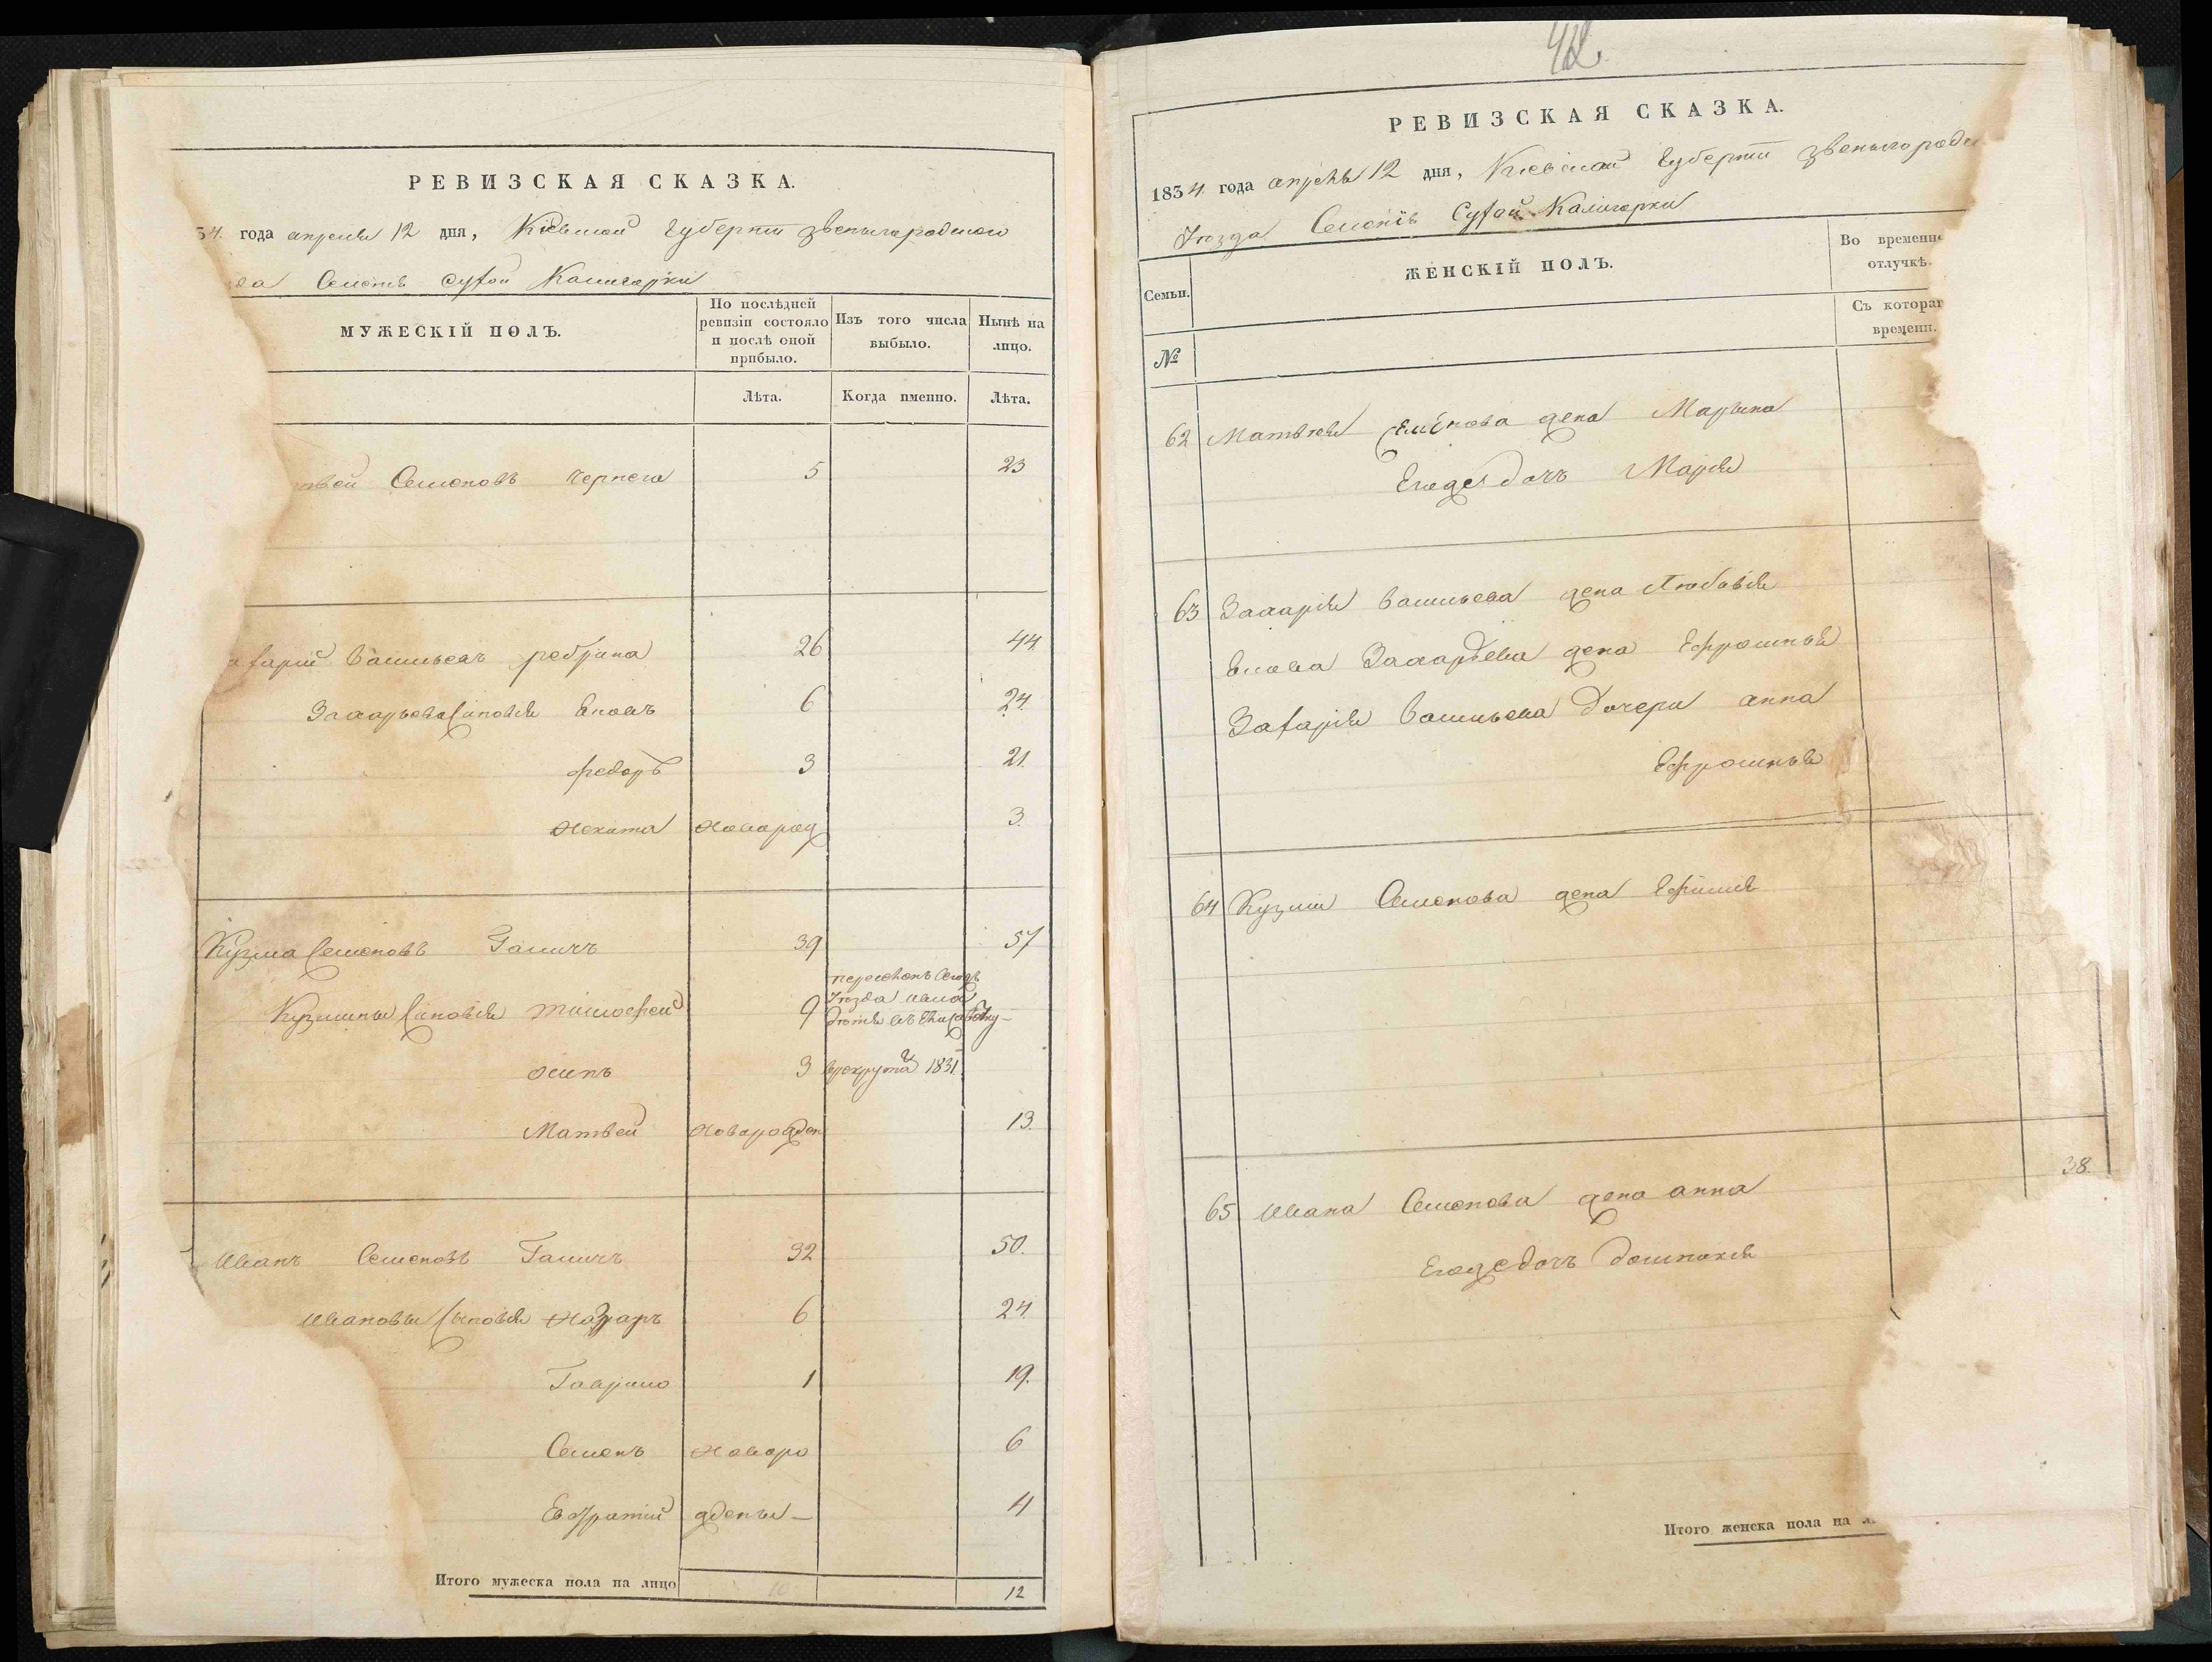 РЕВИЗСКАЯ СКАЗКА.
34. года апреля 12 дня, Кіевской Губерніи Звенигородского
Селенія Сухой Калигорки
МУЖЕСКІЙ ПОЛЪ.
По послѣдней ревизіи состояло и послѣ оной прибыло.
Изъ того числа выбыло.
Нынѣ на лицо.
Лѣта.
Когда именно.
Лѣта.
Семеновъ Чернега 5 23
Васильевъ 26 44
Захарьева Сыновья 6 24
Федоръ 3 21
Никита Новорож 3
Кузма Семеновъ Галичъ 39 57
Кузмины Сыновья Тимофей 9
Уезда
Осипъ 3 1831
Матвей Новорожден 13
Иванъ Семеновъ Галичъ 32 50.
Ивановы Сыновья Назаръ 6 24
Гаврило 1 19.
Семенъ Новоро 6
жденые 4
Итого мужеска пола на лицо 10 12
42.
РЕВИЗСКАЯ СКАЗКА.
1834 года апреля 12 дня, Кіевской Губерніи Звенигородс
Уезда Селенія Сухой Калигорки
Семьи.
ЖЕНСКІЙ ПОЛЪ.
Во временно
отлучкѣ.
Съ котораг
времени.
№
62 Матвея Семенова жена Марына
Егоже дочь Марія
63 Захарія Васильева жена Любовія
Захарьева жена Ефросинья
Захарія Васильева Дочери анна
Ефросинья
64 Кузми Семенова жена
38.
65 Ивана Семенова жена анна
Егоже дочь Домникія
Итого женска пола на